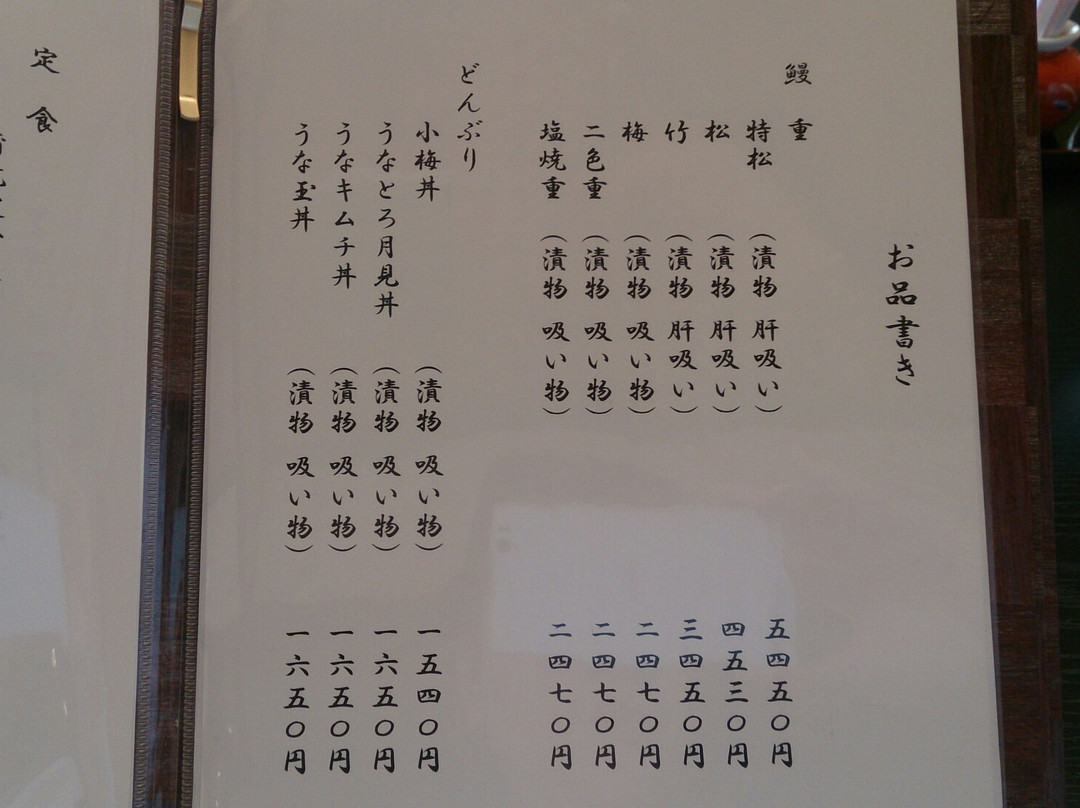 お品書き
鰻重
特松 (漬物 肝吸い) 五四五〇円
松 (漬物 肝吸い) 四五三〇円
竹 (漬物 肝吸い) 三四五〇円
梅 (漬物 吸い物) 二四七〇円
二色重 (漬物 吸い物) 二四七〇円
塩焼重 (漬物 吸い物) 二四七〇円
どんぶり
小梅丼 (漬物 吸い物) 一五四〇円
うなとろ月見丼 (漬物 吸い物) 一六五〇円
うなキムチ丼 (漬物 吸い物) 一六五〇円
うな玉丼 (漬物 吸い物) 一六五〇円
定食